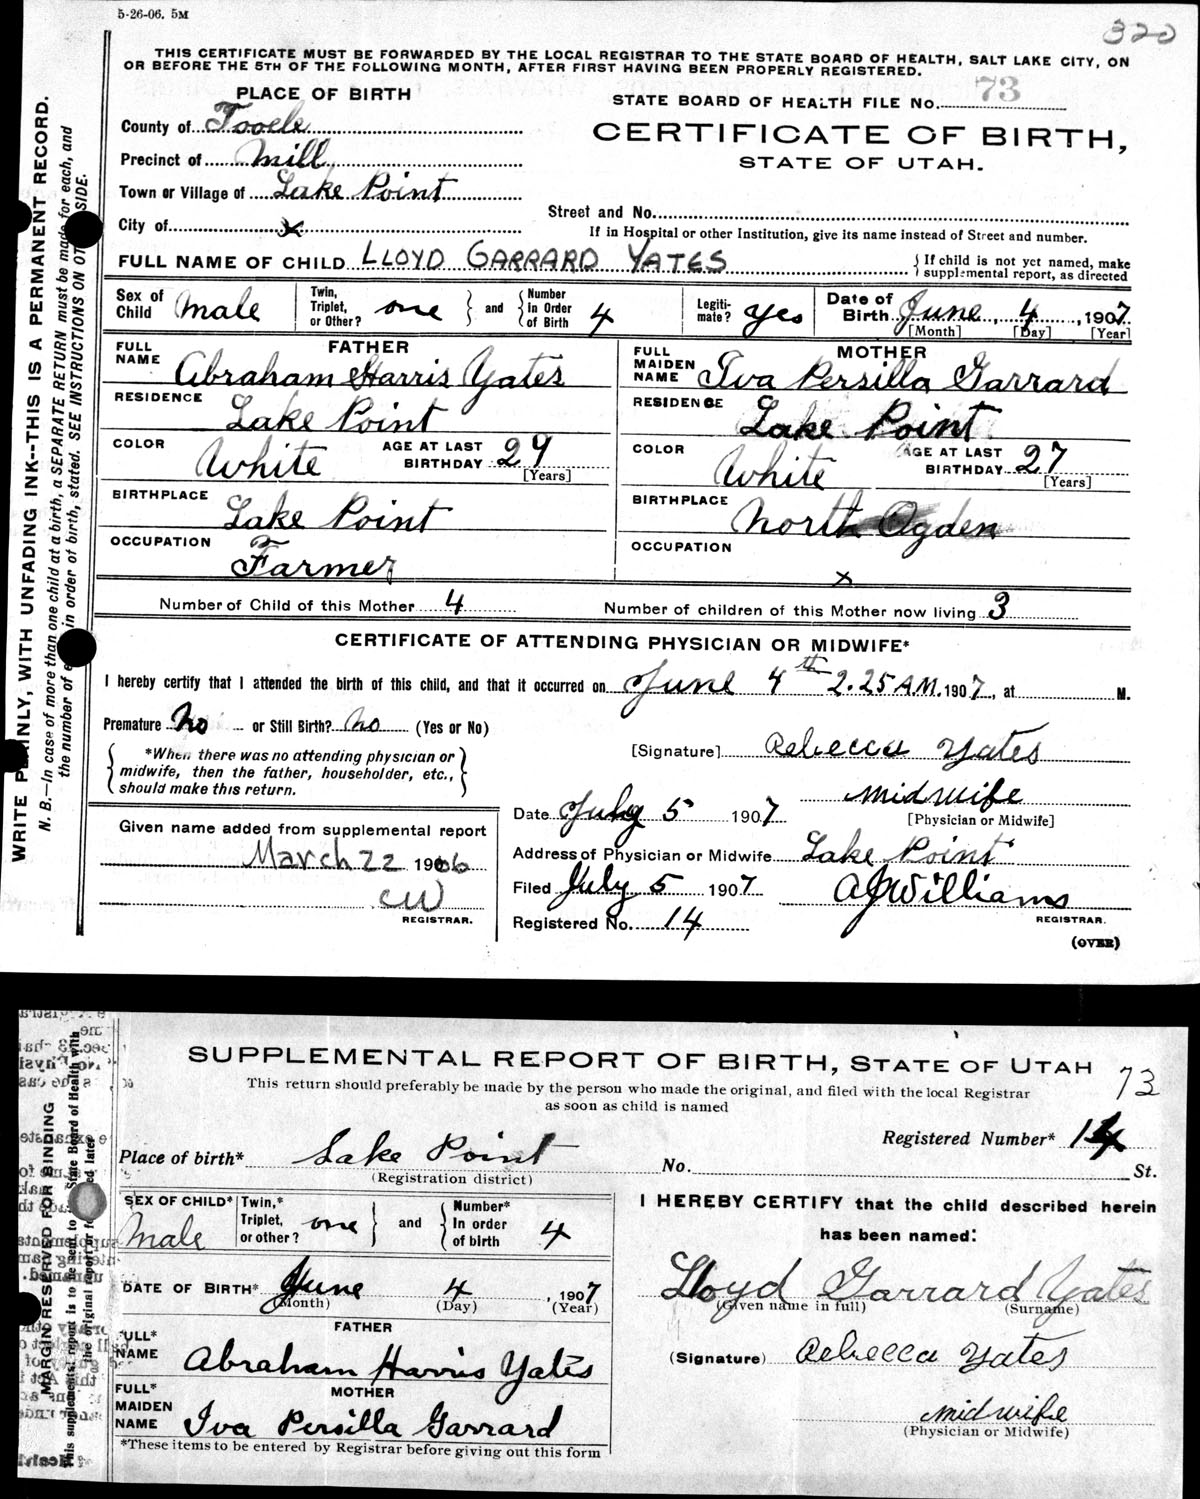 5-26-06. 5M
320
THIS CERTIFICATE MUST BE FORWARDED BY THE LOCAL REGISTRAR TO THE STATE BOARD OF HEALTH, SALT LAKE CITY, ON
OR BEFORE THE 5TH OF THE FOLLOWING MONTH, AFTER FIRST HAVING BEEN PROPERLY REGISTERED.
WRITE PLAINLY, WITH UNFADING INK--THIS IS A PERMANENT RECORD.
N. B.—In case of more than one child at a birth, a SEPARATE RETURN must be made for each, and
the number of in order of birth, stated. SEE INSTRUCTIONS ON SIDE.
PLACE OF BIRTH
STATE BOARD OF HEALTH FILE No. 73
County of Tooele
CERTIFICATE OF BIRTH,
Precinct of Mill
STATE OF UTAH.
Town or Village of Lake Point
Street and No.
City of x
If in Hospital or other Institution, give its name instead of Street and number.
FULL NAME OF CHILD LLOYD GARRARD YATES { If child is not yet named, make supplemental report, as directed
Sex of Child male Twin, Triplet, or Other? one } and { Number in Order of Birth 4 Legitimate? yes Date of Birth June, 4, 1907
[Month] [Day] [Year]
FATHER MOTHER
FULL NAME Abraham Harris Yates FULL MAIDEN NAME Iva Persilla Garrard
RESIDENCE Lake Point RESIDENCE Lake Point
COLOR White AGE AT LAST BIRTHDAY 29 [Years] COLOR White AGE AT LAST BIRTHDAY 27 [Years]
BIRTHPLACE Lake Point BIRTHPLACE North Ogden
OCCUPATION Farmer OCCUPATION x
Number of Child of this Mother 4 Number of children of this Mother now living 3
CERTIFICATE OF ATTENDING PHYSICIAN OR MIDWIFE*
I hereby certify that I attended the birth of this child, and that it occurred on June 4th 2.25 A.M. 1907, at M.
Premature no or Still Birth? no (Yes or No)
[Signature] Rebecca Yates
{ *When there was no attending physician or
midwife, then the father, householder, etc.,
should make this return. }
midwife
[Physician or Midwife]
Date July 5 1907
Given name added from supplemental report
Address of Physician or Midwife Lake Point
March 22 1906
Filed July 5 1907 A J Williams
CW
REGISTRAR. REGISTRAR.
Registered No. 14
(OVER)
SUPPLEMENTAL REPORT OF BIRTH, STATE OF UTAH
73
This return should preferably be made by the person who made the original, and filed with the local Registrar
as soon as child is named
MARGIN RESERVED FOR BINDING
Registered Number* 14
Place of birth* Lake Point No. St.
(Registration district)
SEX OF CHILD* Male Twin,* Triplet, or other? one } and { Number* In order of birth 4
I HEREBY CERTIFY that the child described herein
has been named:
DATE OF BIRTH* June 4, 1907
(Month) (Day) (Year)
Lloyd Garrard Yates
(Given name in full) (Surname)
FATHER
FULL* NAME Abraham Harris Yates
(Signature) Rebecca Yates
MOTHER
FULL* MAIDEN NAME Iva Persilla Garrard
midwife
(Physician or Midwife)
*These items to be entered by Registrar before giving out this form